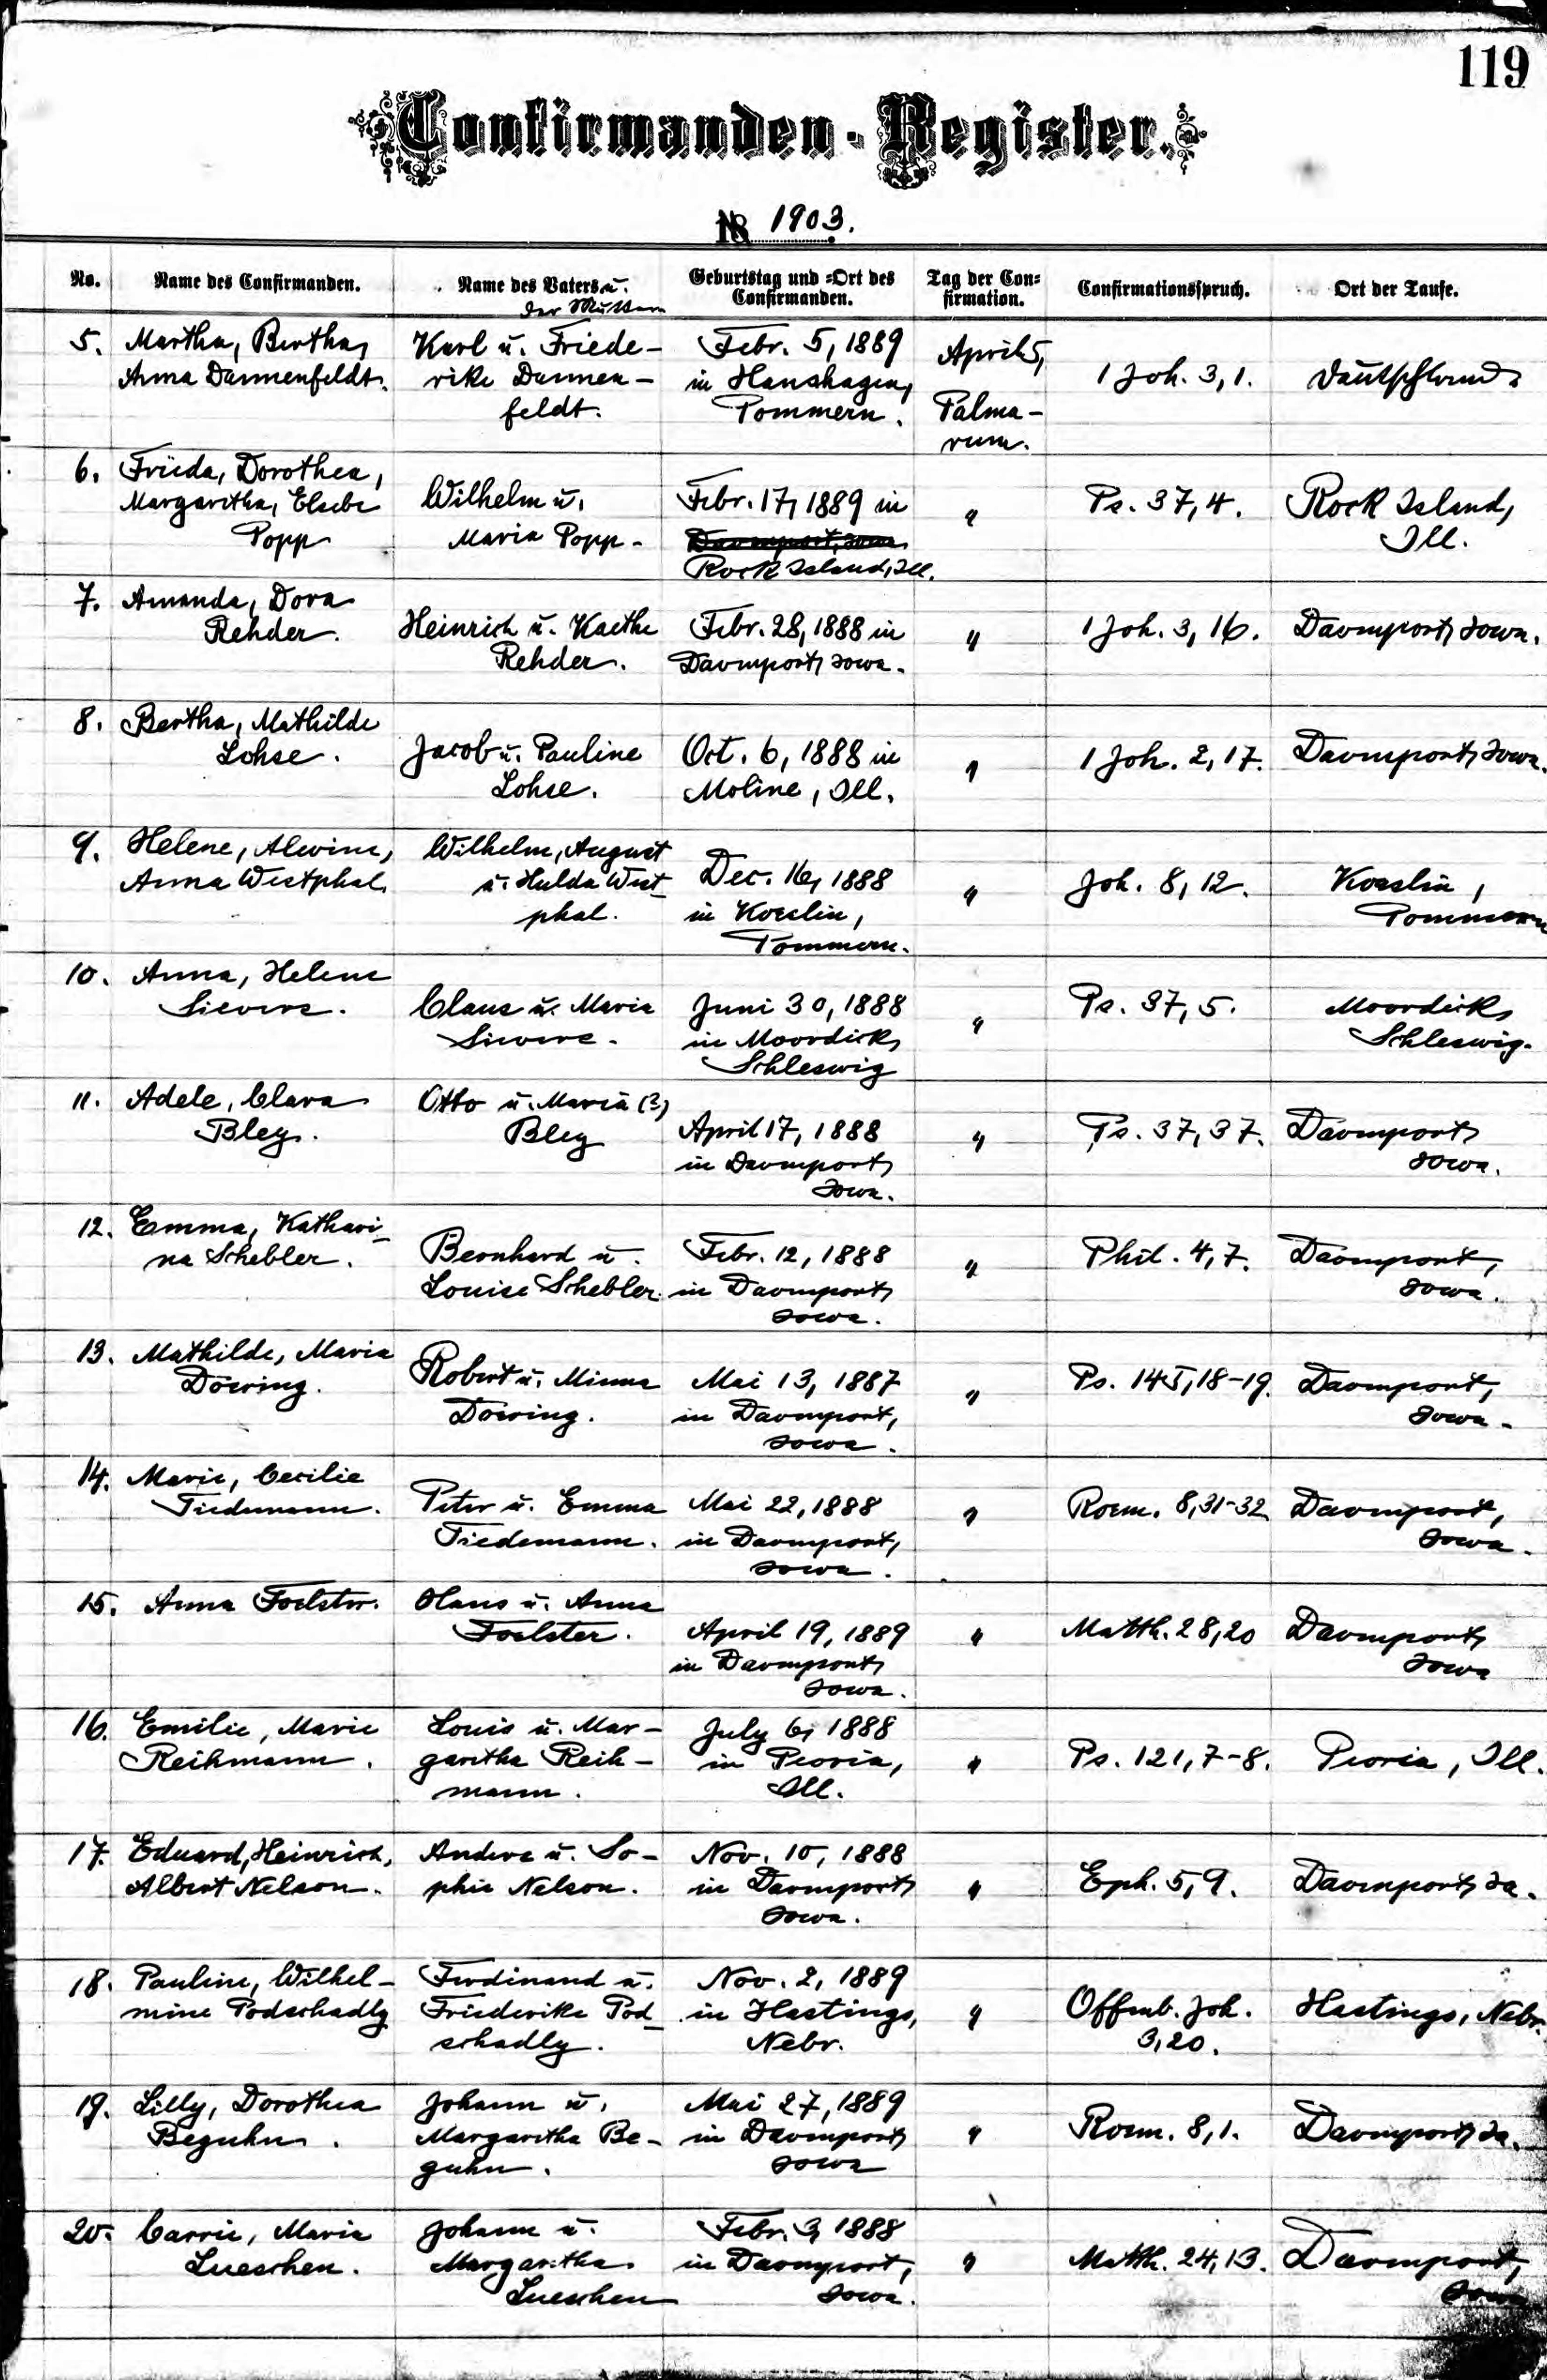 119
Confirmanden-Register.
18 1903.
No. Name des Confirmanden. Name des Vaters u. der Mutter Geburtstag und =Ort des Confirmanden. Tag der Con=firmation. Confirmationsspruch. Ort der Taufe.
5. Martha, Bertha, Karl u. Friede- Febr. 5, 1889 April 5,
Anna Dannenfeldt. rike Dannen- in Hanshagen, 1 Joh. 3, 1. Deutschland
feldt. Pommern. Palma-
rum.
6. Frieda, Dorothea,
Margaretha, Elsebe Wilhelm u. Febr. 17, 1889 in " Ps. 37, 4. Rock Island,
Popp Maria Popp. Davenport, Iowa Ill.
Rock Island, Ill.
7. Amanda, Dora
Rehder. Heinrich u. Kaethe Febr. 28, 1888 in " 1 Joh. 3, 16. Davenport, Iowa.
Rehder. Davenport, Iowa.
8. Bertha, Mathilde
Lohse. Jacob u. Pauline Oct. 6, 1888 in " 1 Joh. 2, 17. Davenport, Iowa.
Lohse. Moline, Ill.
9. Helene, Alwine, Wilhelm, August
Anna Westphal. u. Hulda West- Dec. 16, 1888 " Joh. 8, 12. Koeslin,
phal. in Koeslin, Pommern
Pommern.
10. Anna, Helene
Sievers. Claus u. Maria Juni 30, 1888 " Ps. 37, 5. Moordiek,
Sievers. in Moordiek, Schleswig.
Schleswig
11. Adele, Clara Otto u. Maria (?)
Bley. Bley April 17, 1888 " Ps. 37, 37. Davenport,
in Davenport, Iowa.
Iowa.
12. Emma, Kathari-
na Schebler. Bernhard u. Febr. 12, 1888 " Phil. 4, 7. Davenport,
Louise Schebler. in Davenport, Iowa.
Iowa.
13. Mathilde, Maria
Döering. Robert u. Minna Mai 13, 1887 " Ps. 145, 18-19. Davenport,
Döering. in Davenport, Iowa.
Iowa.
14. Marie, Cecilie
Tiedemann. Peter u. Emma Mai 22, 1888 " Roem. 8, 31-32. Davenport,
Tiedemann. in Davenport, Iowa.
Iowa.
15. Anna Foelster. Hans u. Anna
Foelster. April 19, 1889 " Matth. 28, 20 Davenport,
in Davenport, Iowa
Iowa.
16. Emilie, Marie Louis u. Mar- July 6, 1888
Reihmann. garetha Reih- in Peoria, " Ps. 121, 7-8. Peoria, Ill.
mann. Ill.
17. Eduard, Heinrich, Anders u. So- Nov. 10, 1888
Albert Nelson. phie Nelson. in Davenport, " Eph. 5, 9. Davenport, Ia.
Iowa.
18. Pauline, Wilhel- Ferdinand u. Nov. 2, 1889
mine Podschadly Friederike Pod- in Hastings, " Offenb. Joh. Hastings, Nebr.
schadly. Nebr. 3, 20.
19. Lilly, Dorothea Johann u. Mai 27, 1889
Beguhn. Margaretha Be- in Davenport, " Roem. 8, 1. Davenport, Ia.
guhn. Iowa
20. Carrie, Maria Johann u. Febr. 3, 1888
Lueschen. Margaretha in Davenport, " Matth. 24, 13. Davenport,
Lueschen Iowa. Iowa